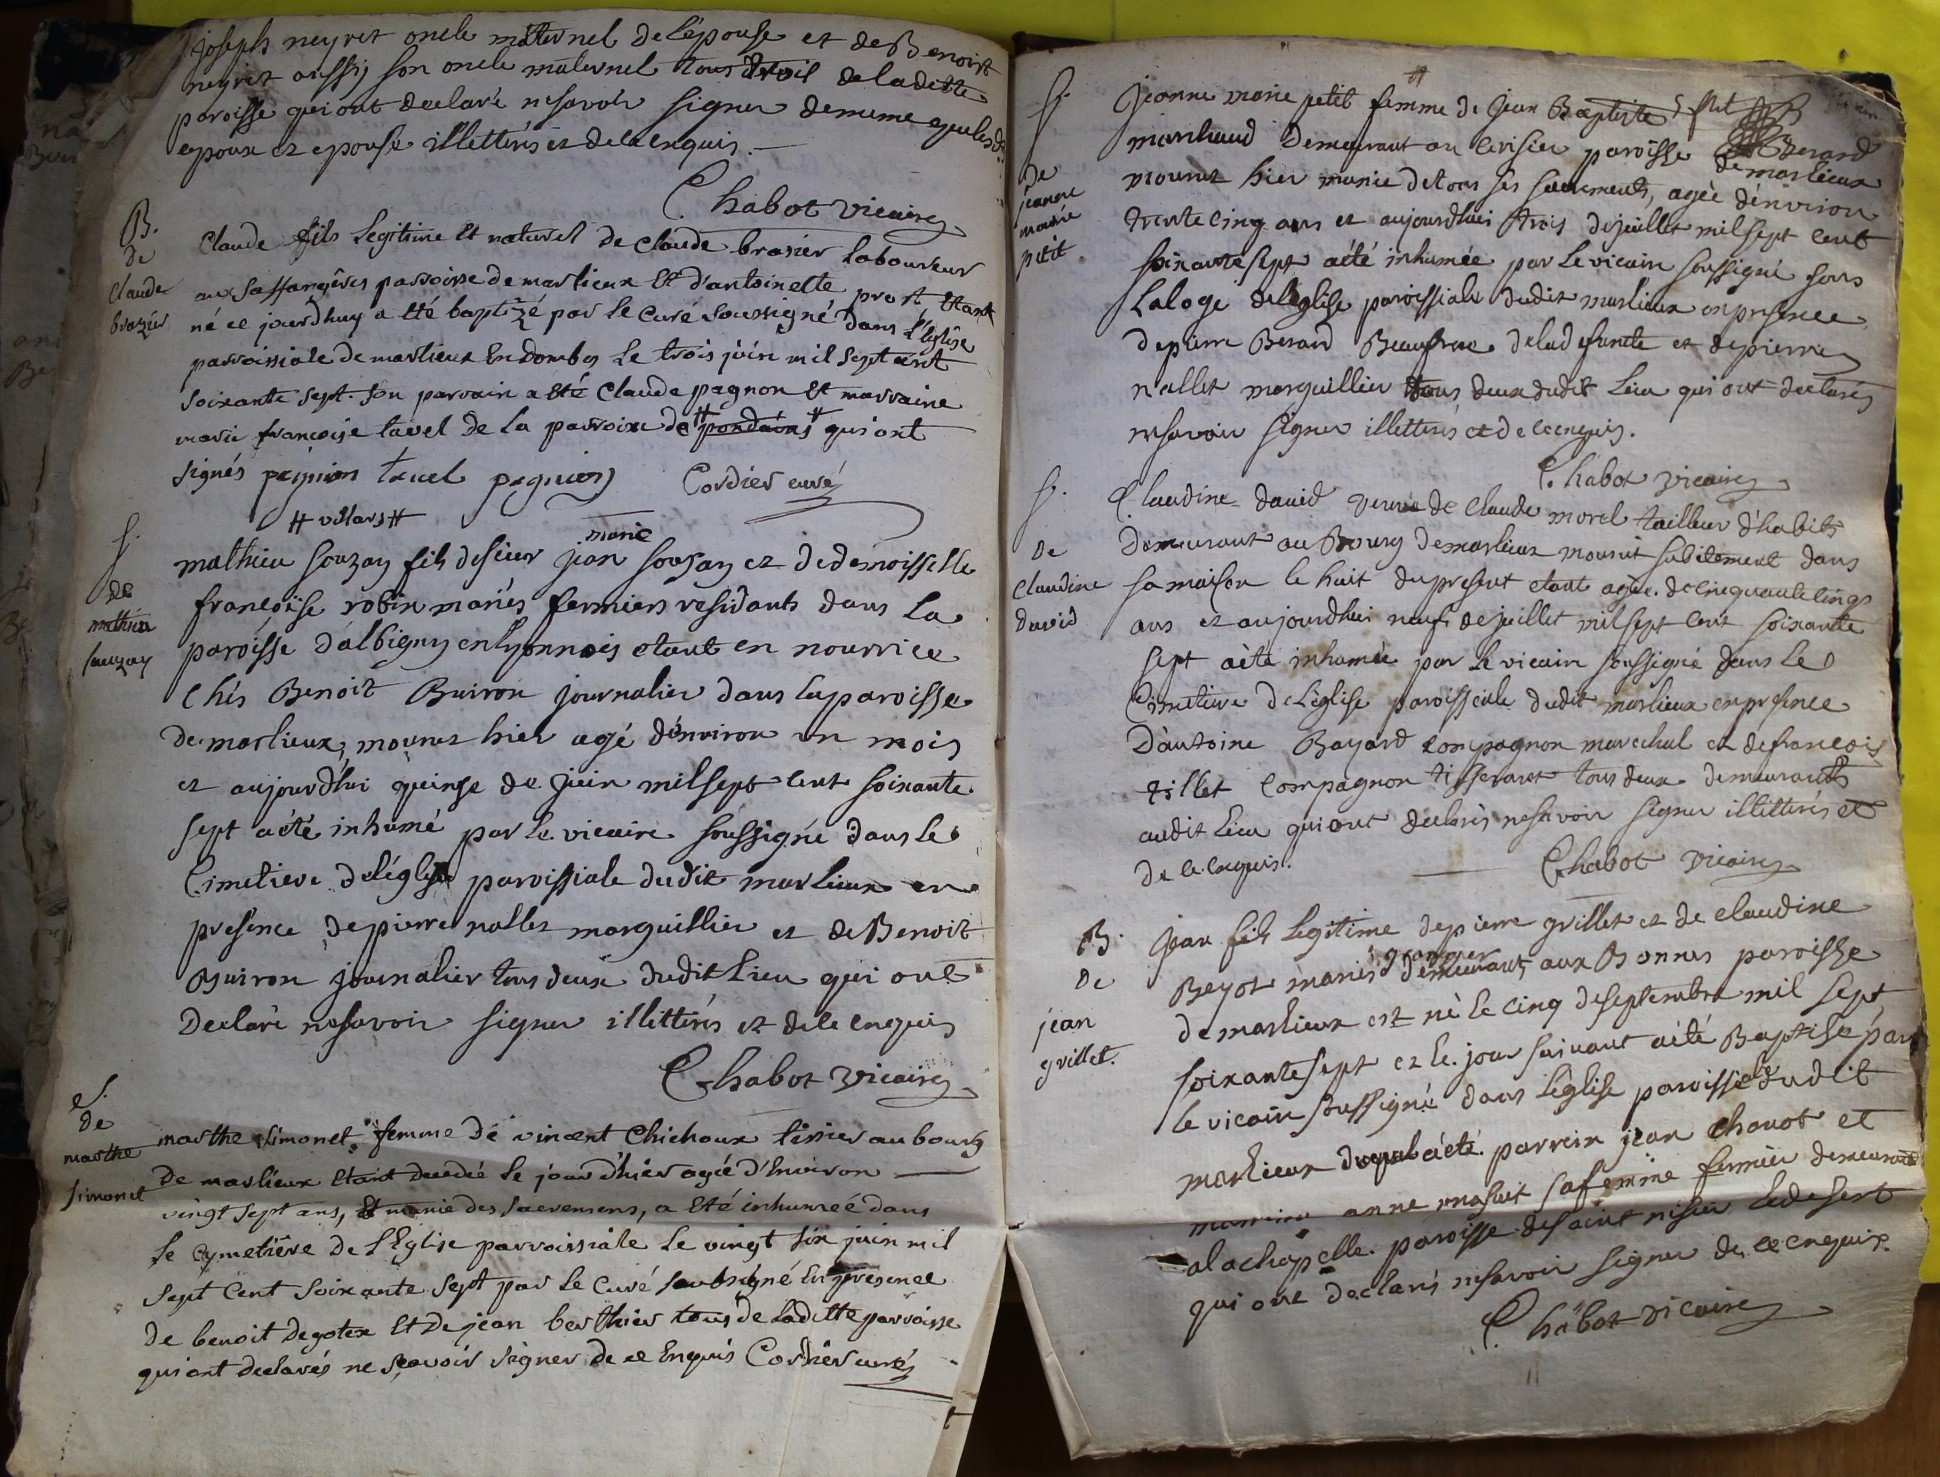 joseph neyret oncle maternel de L'épouse et de Benoist
neyret aussy son oncle maternel tous trois de la ditte
paroisse qui ont declaré ne savoir signer de meme que lesd.
epoux et epouse illettérés et de ce enquis. —
Chabot vicaire
B.
de
Claude
brazier
Claude fils Legitime Et naturel de claude brasier Laboureur
aux saffangères parroisse de marlieux Et d'antoinette prost Etant
né ce jourdhuy a Eté baptizé par le Curé soussigné dans L'Eglise
parroissiale de marlieux En dombes Le trois juin mil Sept cent
soixante sept. son parrain a Eté Claude pagnon Et marraine
marie françoise tavel de La parroisse de # pondains # qui ont
signés pagnion tavel pagnion Cordier curé
# villars #
S.
de
mathieu
sauzay
marie
mathieu souzay fils de sieur jean souzay et de demoisselle
françoise robin mariés fermiers residants dans La
paroisse d'albigny en lyonnois etant en nourrice
chés Benoit Buiron journalier dans la paroisse
de marlieux, mourut hier agé d'environ un mois
et aujourd'hui quinze de juin mil sept cent soixante
sept a été inhumé par le vicaire soussigné dans le
Cimetiere de l'église paroissiale dudit marlieux en
presence de pierre nallet marguillier et de Benoit
Buiron journalier tous deux dudit Lieu qui ont
Declaré ne savoir signer illettérés et de ce enquis
Chabot vicaire
S.
de
marthe
simonet
marthe simonet femme de vincent Chichoux tissier au bourg
de marlieux Etant decedée le jour d'hier agée d'Environ —
vingt sept ans, Et munie des sacremens, a Eté inhumée dans
le cymetière de L'Eglise parroissiale le vingt six juin mil
sept Cent soixante sept par le Curé soubsigné En presence
de benoit Degotex Et De jean berthier tous de La ditte parroisse
qui ont declarés ne scavoir signer de ce Enquis Cordier curé
S.
de
jeanne
marie
petit
Jeanne marie petit femme de jean Baptiste
marchand Demeurant au cerisier paroisse de marlieux
Berard
mourut hier munie de tous ses sacrements, agée d'environ
trente cinq ans et aujourdhui trois de juillet mil sept cent
soixante sept a été inhumée par Le vicaire soussigné sous
La loge de l'église paroissiale dudit marlieux en presence
de pierre Berard Beaufrere de lad defunte et de pierre
nallet marguillier tous deux dudit Lieu qui ont declarés
ne savoir signer illettérés et de ce enquis.
Chabot vicaire
S.
de
Claudine
david
Claudine david veuve de Claude morel tailleur d'habits
demeurant au Bourg de marlieux mourut subitement dans
sa maison le huit du present etant agée de cinquante cinq
ans et aujourdhui neuf de juillet mil sept cent soixante
sept a été inhumée par le vicaire soussigné dans le
Cimetiere de L'église paroissiale dudit marlieux en presence
D'antoine Bayard compagnon marechal et de francois
tillet compagnon tisserant tous deux demeurants
audit Lieu qui ont declarés ne savoir signer illettérés et
de ce enquis. — Chabot vicaire
B.
de
jean
grillet.
Jean fils Legitime de pierre grillet et de claudine
granger
Beyot mariés demeurants aux Bonnes paroisse
de marlieux est né le cinq de septembre mil sept
soixante sept et le jour suivant a été Baptisé par
le vicaire soussigné dans l'église paroissiale dudit
marlieux duquel a été parrein jean chanot et
marrine anne mascuit sa femme fermier demeurant
a la chapelle paroisse de saint nisier le desert
qui ont declarés ne savoir signer de ce enquis.
Chabot vicaire